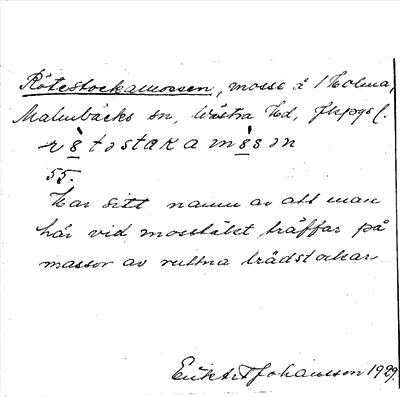 Rötestockamossen, mosse å / Holma,
Malmbäcks sn, Västra hd, Jkpgs l.
55.
Har sitt namn av att man
här vid mosstäkt träffar på
massor av ruttna trädstockar
Johansson 1929.